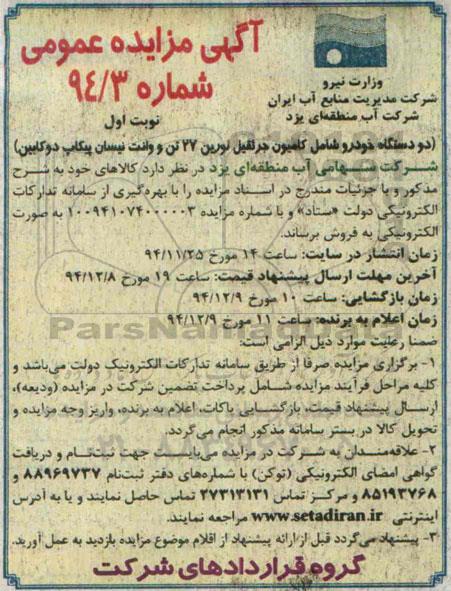 آگهی مزایده عمومی
شماره ۹٤/۳
نوبت اول
وزارت نیرو
شرکت مدیریت منابع آب ایران
شرکت آب منطقه‌ای یزد
(دو دستگاه خودرو شامل کامیون جرثقیل لورین ۲۷ تن و وانت نیسان پیکاپ دوکابین)
شرکت سهامی آب منطقه‌ای یزد در نظر دارد کالاهای خود به شرح
مذکور و با جزئیات مندرج در اسناد مزایده را با بهره‌گیری از سامانه تدارکات
الکترونیکی دولت «ستاد» و با شماره مزایده ۱۰۰۹۴۱۰۷۴۰۰۰۰۰۳ به صورت
الکترونیکی به فروش برساند.
زمان انتشار در سایت: ساعت ۱۴ مورخ ۹۴/۱۱/۲۵
آخرین مهلت ارسال پیشنهاد قیمت: ساعت ۱۹ مورخ ۹۴/۱۲/۸
زمان بازگشایی: ساعت ۱۰ مورخ ۹۴/۱۲/۹
زمان اعلام به برنده: ساعت ۱۱ مورخ ۹۴/۱۲/۹
ParsNamadData
ضمنا رعایت موارد ذیل الزامی است:
۱- برگزاری مزایده صرفا از طریق سامانه تدارکات الکترونیک دولت می‌باشد و
کلیه مراحل فرآیند مزایده شامل پرداخت تضمین شرکت در مزایده (ودیعه)،
ارسال پیشنهاد قیمت، بازگشایی پاکات، اعلام به برنده، واریز وجه مزایده و
تحویل کالا در بستر سامانه مذکور انجام می‌گردد.
۲- علاقه‌مندان به شرکت در مزایده می‌بایست جهت ثبت‌نام و دریافت
گواهی امضای الکترونیکی (توکن) با شماره‌های دفتر ثبت‌نام ۸۸۹۶۹۷۳۷ و
۸۵۱۹۳۷۶۸ و مرکز تماس ۲۷۳۱۳۱۳۱ تماس حاصل نمایند و یا به آدرس
اینترنتی www.setadiran.ir مراجعه نمایند.
۳- پیشنهاد می‌گردد قبل از ارائه پیشنهاد از اقلام موضوع مزایده بازدید به عمل آورید.
گروه قراردادهای شرکت